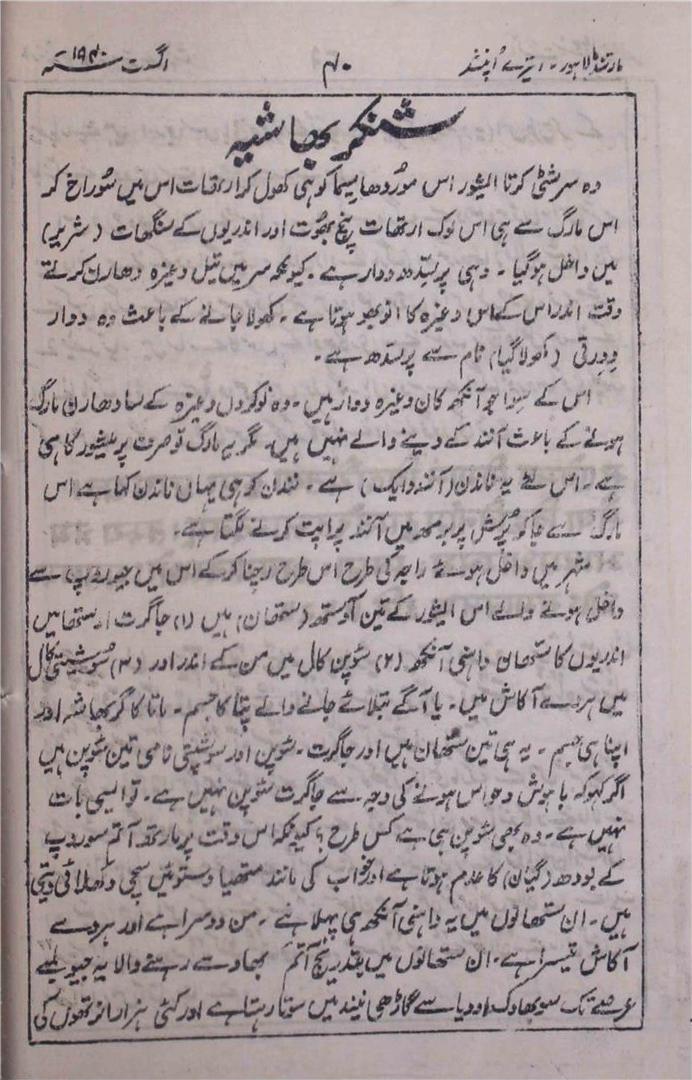 مارتنڈ لاہور۔ ایترے اُپنشد
۴۰
اگست سنہ ۱۹۴۰
شنکر بھاشیہ
وہ سرشٹی کرتا ایشور اس موردھا سیما کو ہی کھول کر ارتھات اس میں سُوراخ کر
اس مارگ سے ہی اس لوک ارتھات پنچ بھوت اور اندریوں کے سنگھات (شریر)
میں داخل ہوگیا۔ وہی پرسِدھ دوار ہے۔ کیونکہ سر میں تیل وغیرہ دھارن کرتے
وقت اندر اس کے اس وغیرہ کا انوبھو ہوتا ہے۔ کھولا جانے کے باعث وہ دوار
وِدرتی (کھولا گیا) نام سے پرسدھ ہے۔
اس کے سوا جو آنکھ کان وغیرہ دوار ہیں۔ وہ نوکروں وغیرہ کے سادھارن مارگ
ہونے کے باعث آنند کے دینے والے نہیں ہیں۔ مگر یہ مارگ تو صرف پرمیشور کا ہی
ہے۔ اس لئے یہ ناندن (آنند دایک) ہے۔ نندن کو ہی یہاں ناندن کہا ہے اس
مارگ سے جاکر پُرش پربرہم میں آنند پراپت کرنے لگتا ہے۔
شہر میں داخل ہوئے راجہ کی طرح اس طرح رچنا کرکے اس میں جیو روپ سے
داخل ہونے والے اس ایشور کے تین آوستھ (ستھان) ہیں (۱) جاگرت اوستھا میں
اندریوں کا ستھان داہنی آنکھ (۲) سُوپن کال میں من کے اندر اور (۳) سُوشپتی کال
میں ہردے آکاش میں۔ یا آگے بتلائے جانے والے پتا کا جسم۔ ماتا کا گربھاشہ اور
اپنا ہی جسم۔ یہ ہی تین ستھان ہیں اور جاگرت۔ سُوپن اور سوشپتی نامی تین سُوپن ہیں
اگر کہو کہ باہوش و حواس ہونے کی وجہ سے جاگرت سُوپن نہیں ہے۔ تو ایسی بات
نہیں ہے۔ وہ بھی سُوپن ہی ہے کس طرح؟ کیونکہ اس وقت پرمارتھ آتم سوروپ
کے بودھ (گیان) کا عدم ہوتا ہے اور خواب کی مانند متھیا وستوئیں سچی دکھلائی دیتی
ہیں۔ ان ستھانوں میں یہ داہنی آنکھ ہی پہلا ہے۔ من دوسرا ہے اور ہردے
آکاش تیسرا ہے۔ ان ستھانوں میں بتدریج آتم بھاؤ سے رہنے والا یہ جیو لمبے
عرصے تک سوبھاوک اودیا سے گاڑھی نیند میں سوتا رہتا ہے اور کئی ہزار انرتھوں کی